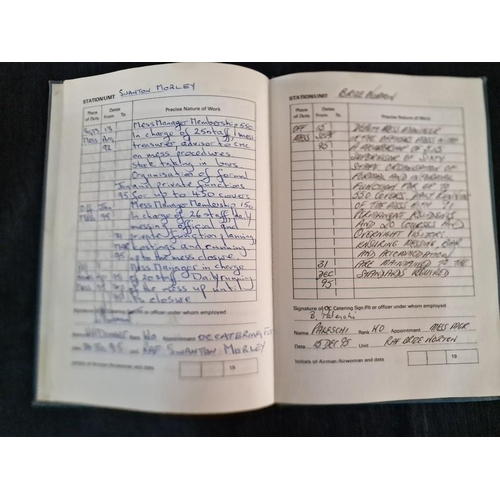 STATION/UNIT SWANTON MORLEY
Place of Duty
Dates From To
Precise Nature of Work
Mess Manager Membership 550
In charge of 25 staff, mess
treasurer, advisor to CMC
on mess procedures
Stock taking in bars
Organisation of formal
and private functions
for up to 450 covers
Mess Manager Membership 150
In charge of 26 staff, daily
messing official and
private function planning
costings and ensuing
up to the mess closure
Mess Manager in charge
of 20 staff Daily running
of the mess up until
its closure
Signature of OC Catering Sqn/Flt or officer under whom employed
Rank WO Appointment OC CATERING
Date 95 Unit RAF SWANTON MORLEY
Initials of Airman/Airwoman and date
19
STATION/UNIT BRIZE NORTON
Place of Duty
Dates From To
Precise Nature of Work
OFF MESS
95
31 DEC 95
DEPUTY MESS MANAGER
IN THE OFFICERS MESS WITH
A MEMBERSHIP OF
SUPERVISOR OF
STAFF, ORGANISATION OF
FORMAL AND INFORMAL
FUNCTIONS FOR UP TO
550 COVERS, DAILY RUNNING
OF THE MESS WITH
PERMANENT RESIDENTS
AND
OVERNIGHT VISITORS.
ENSURING MESSING, BAR
AND ACCOMMODATION
ARE MAINTAINED TO THE
STANDARDS REQUIRED
Signature of OC Catering Sqn/Flt or officer under whom employed
Name PALESCHI Rank WO Appointment MESS MGR
Date 15 DEC 95 Unit RAF BRIZE NORTON
Initials of Airman/Airwoman and date
19